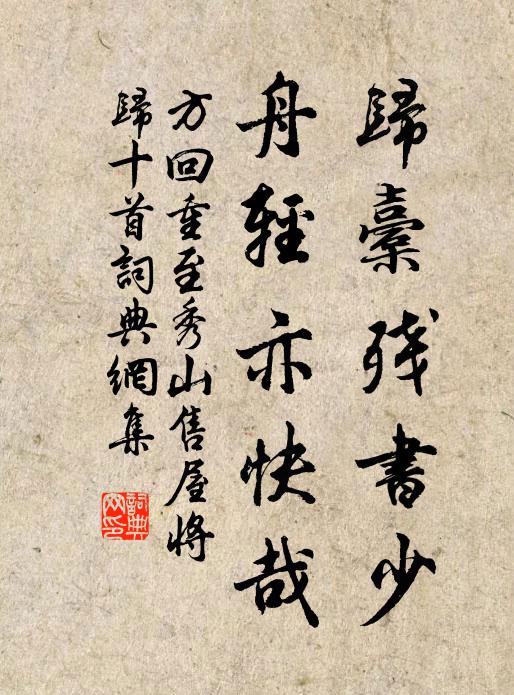 歸橐殘書少
舟輕亦快哉
方回重至秀山售屋將
歸十首詞典網集
詞典网印